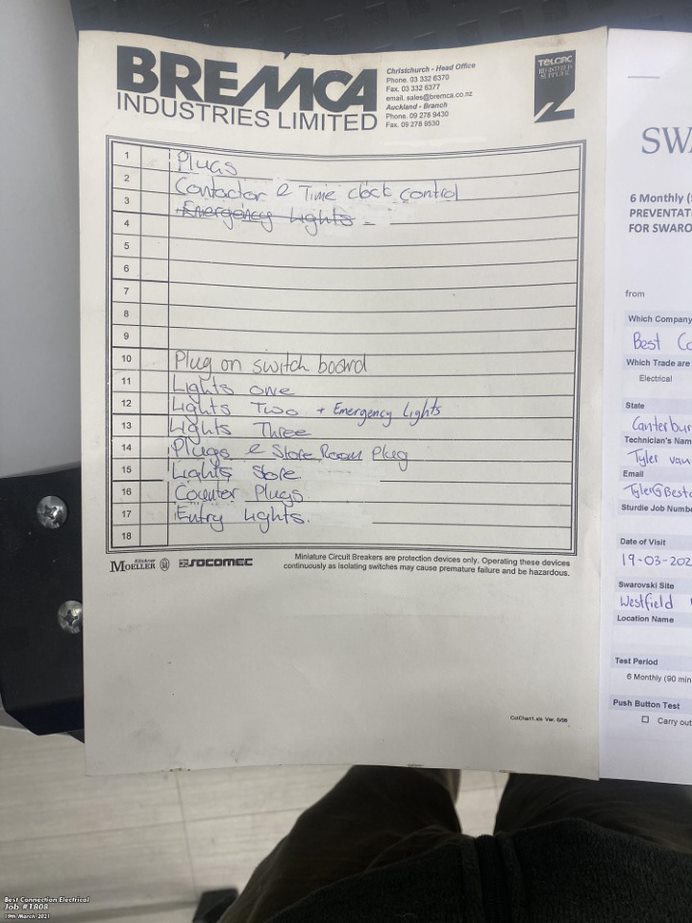 BREMCA
INDUSTRIES LIMITED
Christchurch - Head Office
Phone. 03 332 6370
Fax. 03 332 6377
email. sales@bremca.co.nz
Auckland - Branch
Phone. 09 278 9430
Fax. 09 278 9530
TELARC
REGISTERED
SUPPLIER
1 Plugs
2 Contactor & Time clock control
3 Emergency Lights -
4
5
6
7
8
9
10 Plug on switch board
11 Lights one
12 Lights Two + Emergency Lights
13 Lights Three
14 Plugs & Store Room Plug
15 Lights Store.
16 Counter Plugs
17 Entry Lights.
18
Klöckner
MOELLER
SOCOMEC
Miniature Circuit Breakers are protection devices only. Operating these devices
continuously as isolating switches may cause premature failure and be hazardous.
SWA
6 Monthly (
PREVENTAT
FOR SWARO
from
Which Company
Best Co
Which Trade are
Electrical
State
Canterbur
Technician's Nam
Tyler van
Email
Sturdie Job Numbe
Date of Visit
19-03-202
Swarovski Site
Westfield
Location Name
Test Period
6 Monthly (90 min
Push Button Test
Carry out
Best Connection Electrical
Job #1808
19th March 2021